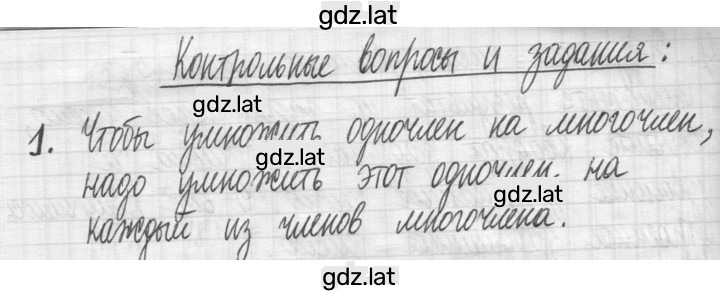 gdz.lat
Контрольные вопросы и задания:
gdz.lat
1. Чтобы умножить одночлен на многочлен,
gdz.lat
надо умножить этот одночлен на
gdz.lat
каждый из членов многочлена.
gdz.lat